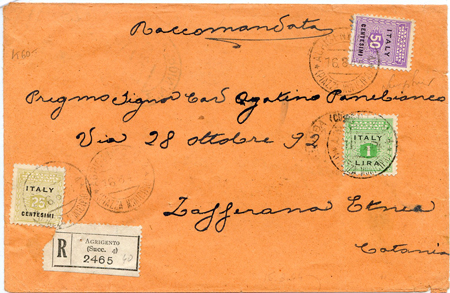 Raccomandata
ITALY
50
CENTESIMI
Pregmo Signor Cav Agatino Panebianco
Via 28 ottobre 92
ITALY
1
LIRA
Zafferana Etnea
Catania
ITALY
25
CENTESIMI
R
AGRIGENTO
(Succ. 4)
2465